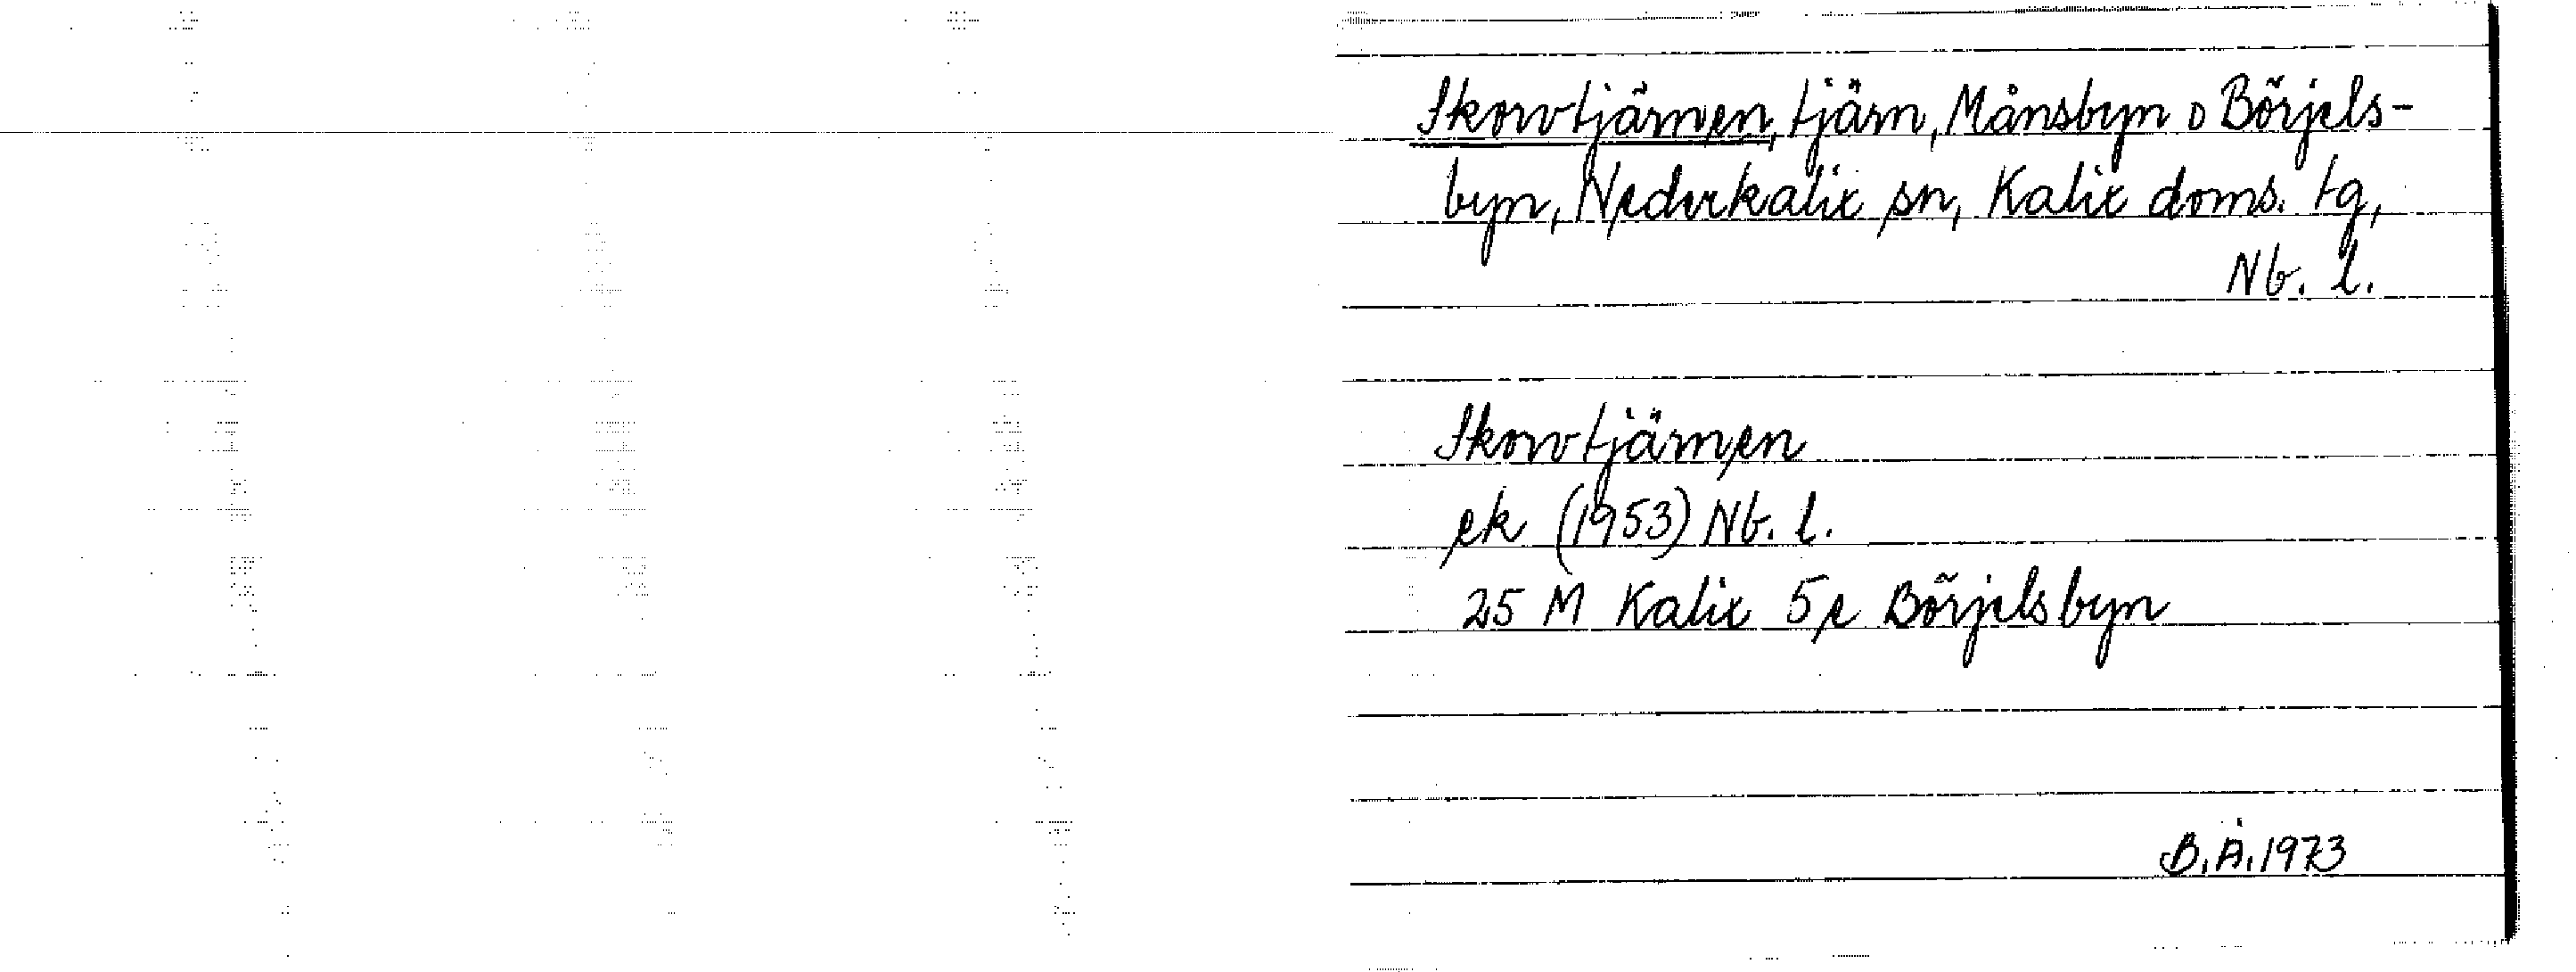 Skorvtjärnen, tjärn, Månsbyn o Börjels-
byn, Nederkalix sn, Kalix doms. tg,
Nb. l.
Skorvtjärnen
ek (1953) Nb. l.
25 M Kalix 5e Börjelsbyn
B. Å. 1973